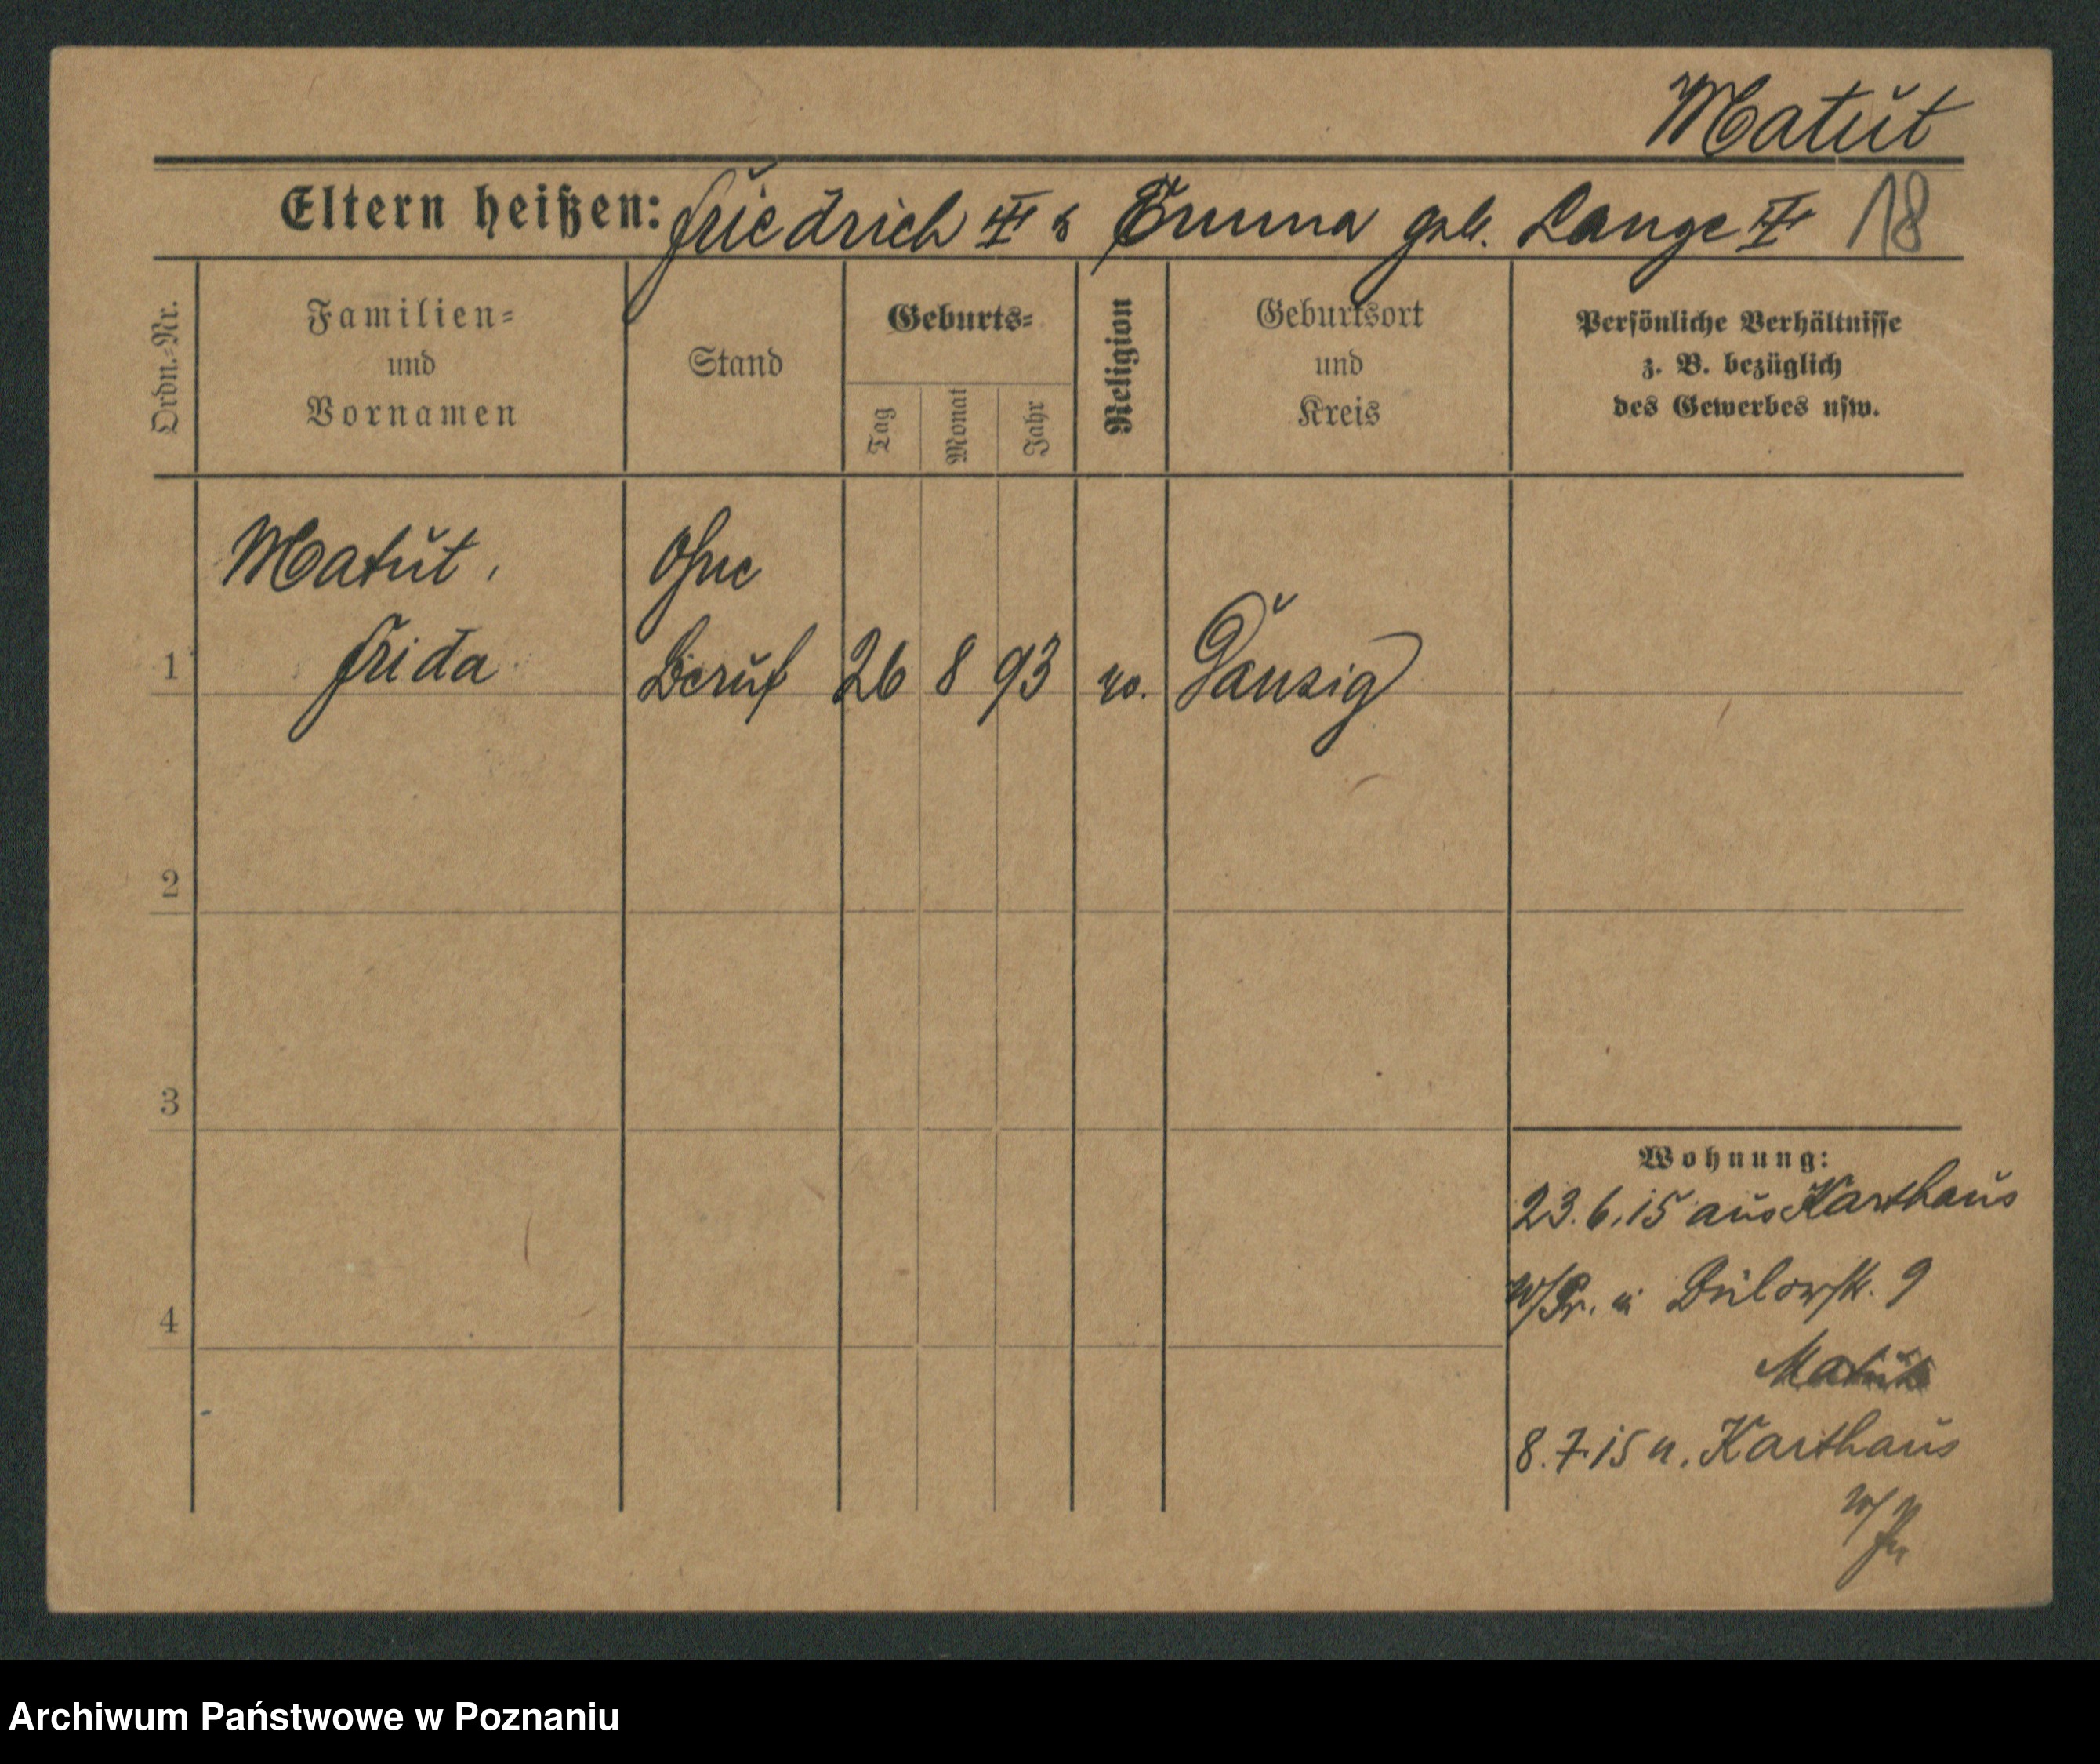 Matut
Eltern heißen: Friedrich u. Emma geb. Lange 18
Ordn.-Nr.
Familien-
und
Vornamen
Stand
Geburts-
Tag
Monat
Jahr
Religion
Geburtsort
und
Kreis
Persönliche Verhältnisse
z. B. bezüglich
des Gewerbes usw.
Matut,
Frida
Ohne
Beruf
1
26 8 93
Danzig
2
3
4
Wohnung:
23.6.15 aus Karthaus
W/Pr. Bülowstr. 9
Matut
8.7.15 n. Karthaus
W/Pr
Archiwum Państwowe w Poznaniu